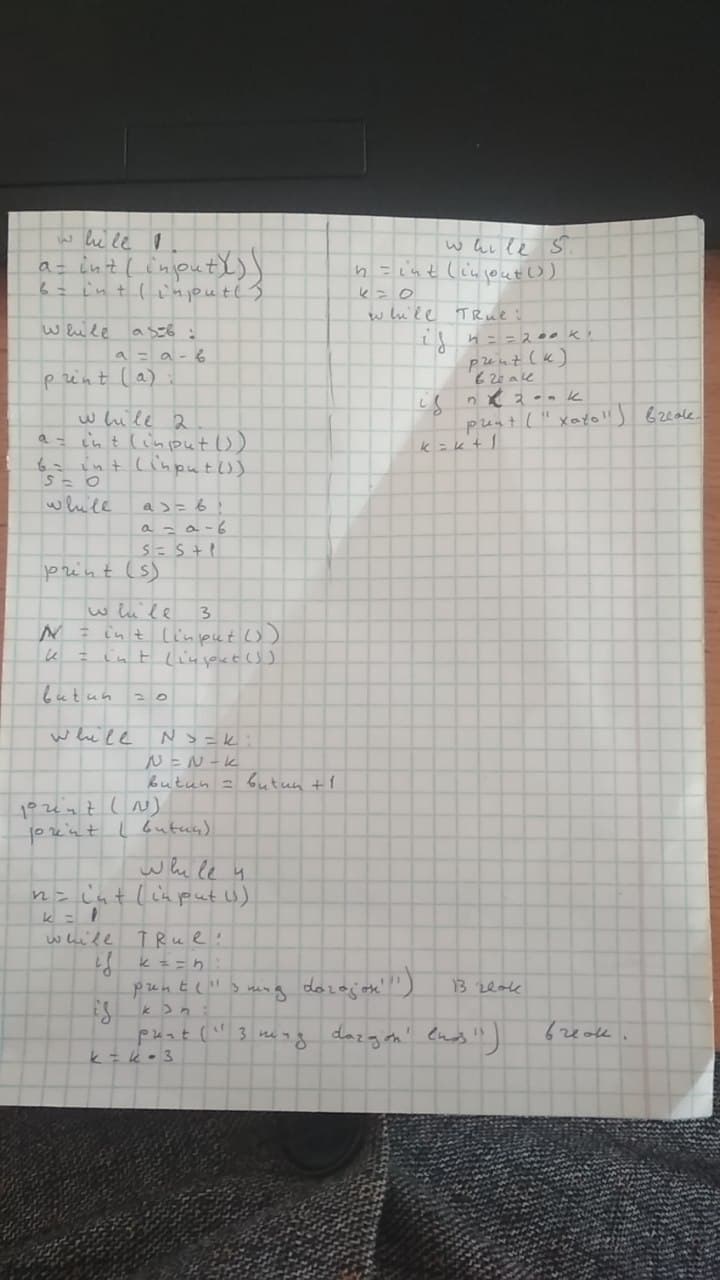 while 1.
a = int(input())
b = int(input()
while a>=b :
a = a - b
print(a) :
while 2.
a = int(input())
b = int(input())
s = 0
while a >= b :
a = a - b
s = s + 1
print(s)
while 3
N = int(input())
k = int(input())
butun = 0
while N >= k :
N = N - k
butun = butun + 1
print(N)
print(butun)
while 4
n = int(input())
k = 1
while TRue :
if k == n :
print("3 ning darajasi") Break
if k > n :
print("3 ning emas") break.
k = k • 3
while 5.
n = int(input())
k = 0
while TRue :
if n == 2 •• k :
print(k)
break
if n < 2 •• k
print("xato") break
k = k + 1